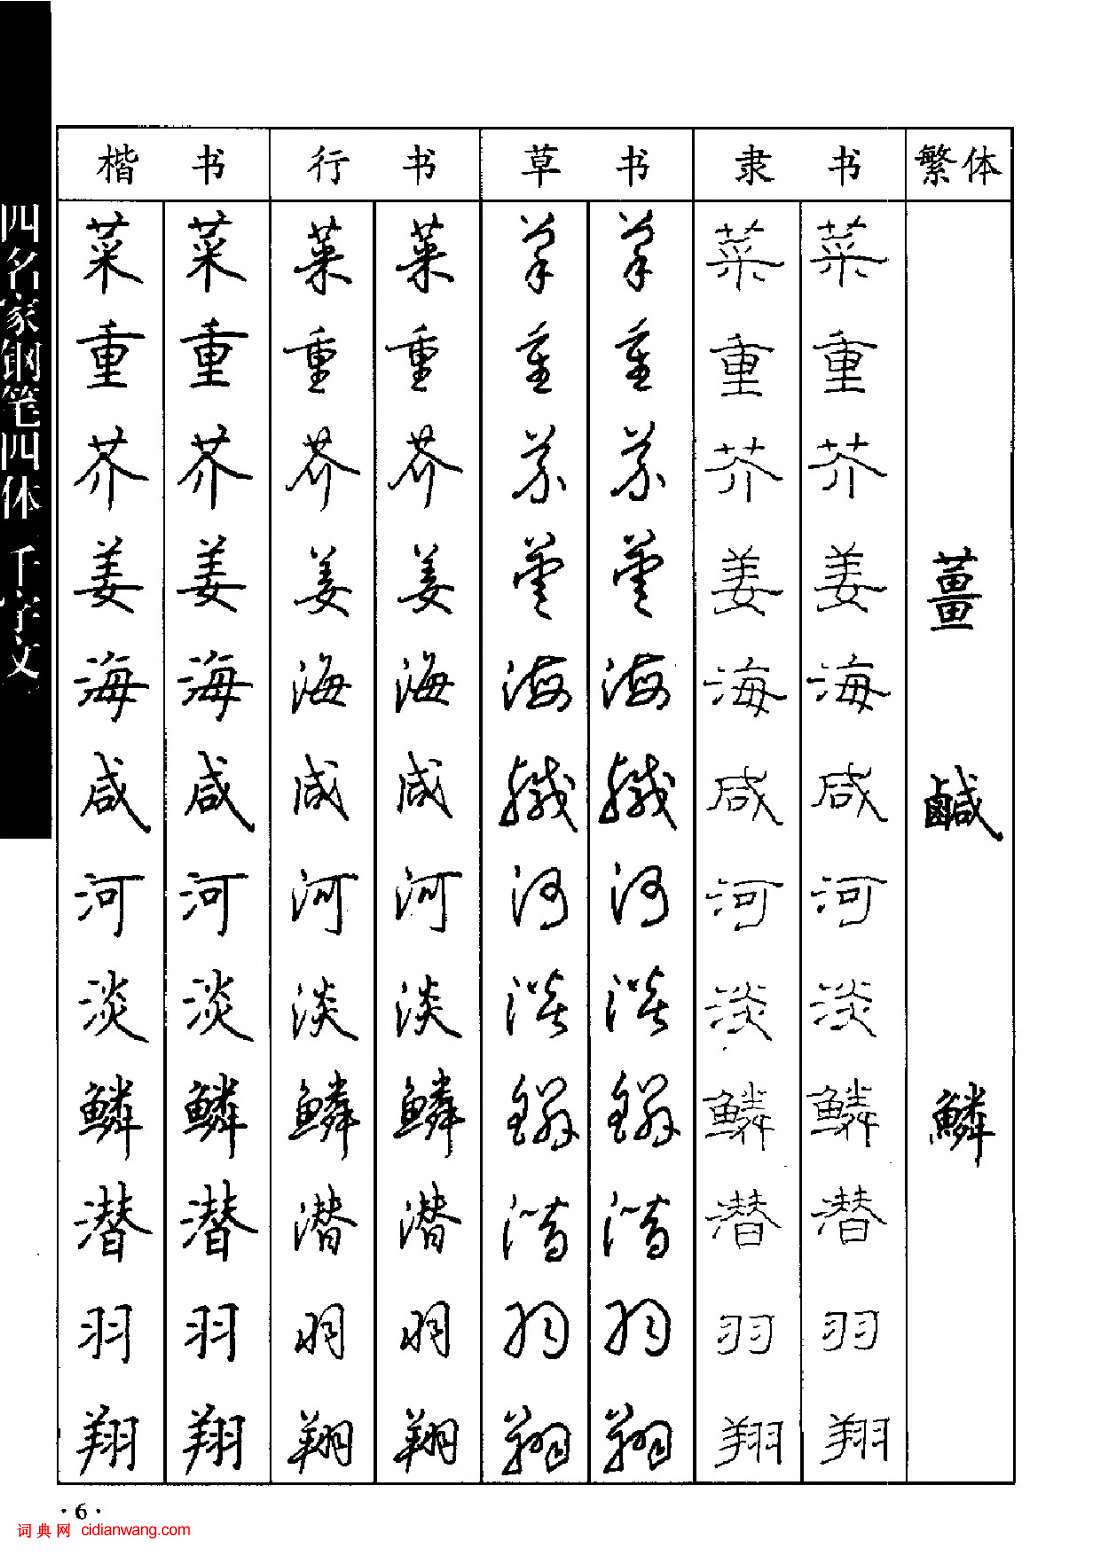 四名家钢笔四体 千字文
楷书 行书 草书 隶书 繁体
菜 菜 菜 菜 菜 菜 菜 菜
重 重 重 重 重 重 重 重
芥 芥 芥 芥 芥 芥 芥 芥
姜 姜 姜 姜 薑 薑 姜 姜 薑
海 海 海 海 海 海 海 海
咸 咸 咸 咸 鹹 鹹 咸 咸 鹹
河 河 河 河 河 河 河 河
淡 淡 淡 淡 淡 淡 淡 淡
鳞 鳞 鳞 鳞 鳞 鳞 鳞 鳞 鱗
潜 潜 潜 潜 潜 潜 潜 潜
羽 羽 羽 羽 羽 羽 羽 羽
翔 翔 翔 翔 翔 翔 翔 翔
·6·
词典网 cidianwang.com